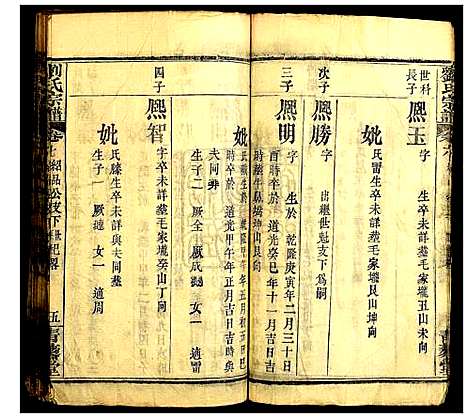 劉氏宗譜
世科長子
熙玉
字 生卒未詳葬毛家壠丑山未向
妣
氏雷生卒未詳葬毛家壠山坤
次子
熙勝
字 出繼世魁支下爲嗣
三子
熙明
字 生於乾隆庚寅年二月三十日
時卒於道光癸巳年十一月吉日
時葬牛
山艮
妣
年五月吉日吉
時卒於道光甲午年正月吉日吉時矣
夫同
生子二 厥全 厥成 女一 適雷
四子
熙智
字 生卒未詳葬毛家壠癸山丁
妣
氏滕生卒未詳與夫同葬
生子一 厥 女一 適周
劉氏宗譜
松支下世紀畧
五
青藜堂